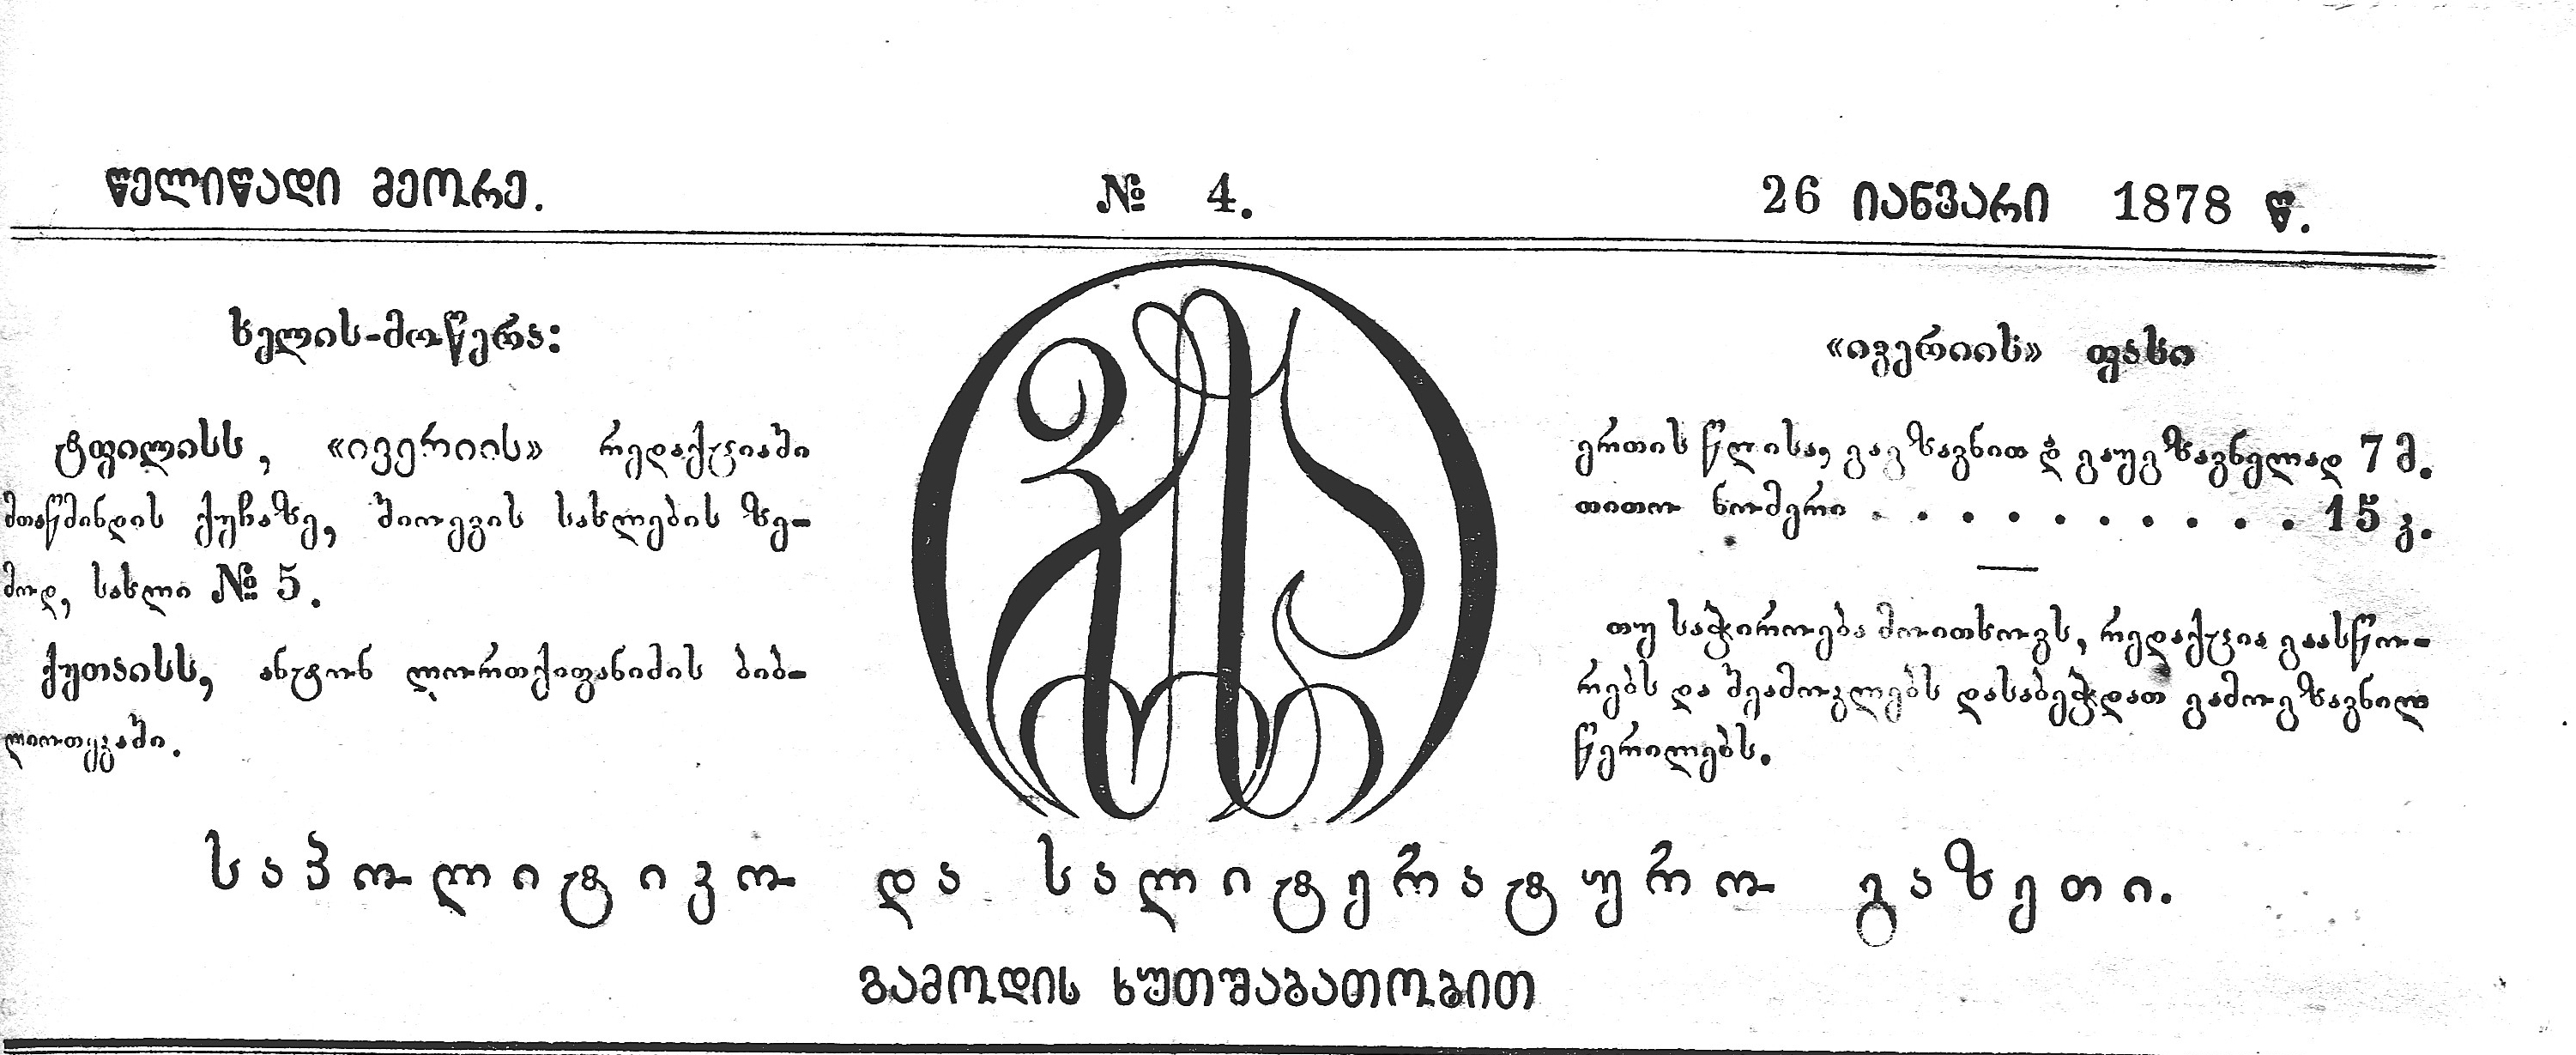 წელიწადი მეორე.
№ 4.
26 იანვარი 1878 წ.
ხელის-მოწერა:
ტფილისს, «ივერიის» რედაქციაში
მთაწმინდის ქუჩაზე, შიოევის სახლების ზე-
მოდ, სახლი № 5.
ქუთაისს, ანტონ ლორთქიფანიძის ბიბ-
ლიოთეკაში.
«ივერიის» ფასი
ერთის წლისა, გაგზავნით და გაუგზავნელად 7 მ.
თითო ნომერი . . . . . . . . . . 15 კ.
თუ საჭიროება მოითხოვს, რედაქცია გაასწო-
რებს და შეამოკლებს დასაბეჭდათ გამოგზავნილ
წერილებს.
საპოლიტიკო და სალიტერატურო გაზეთი.
გამოდის ხუთშაბათობით